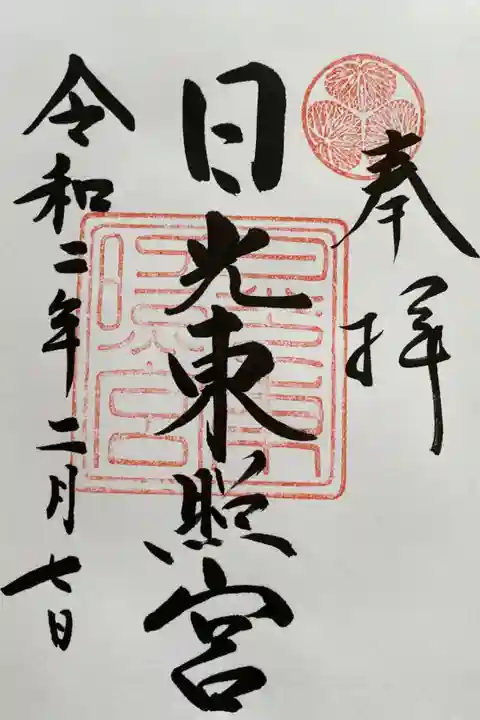 奉拝
日光東照宮
令和二年二月七日